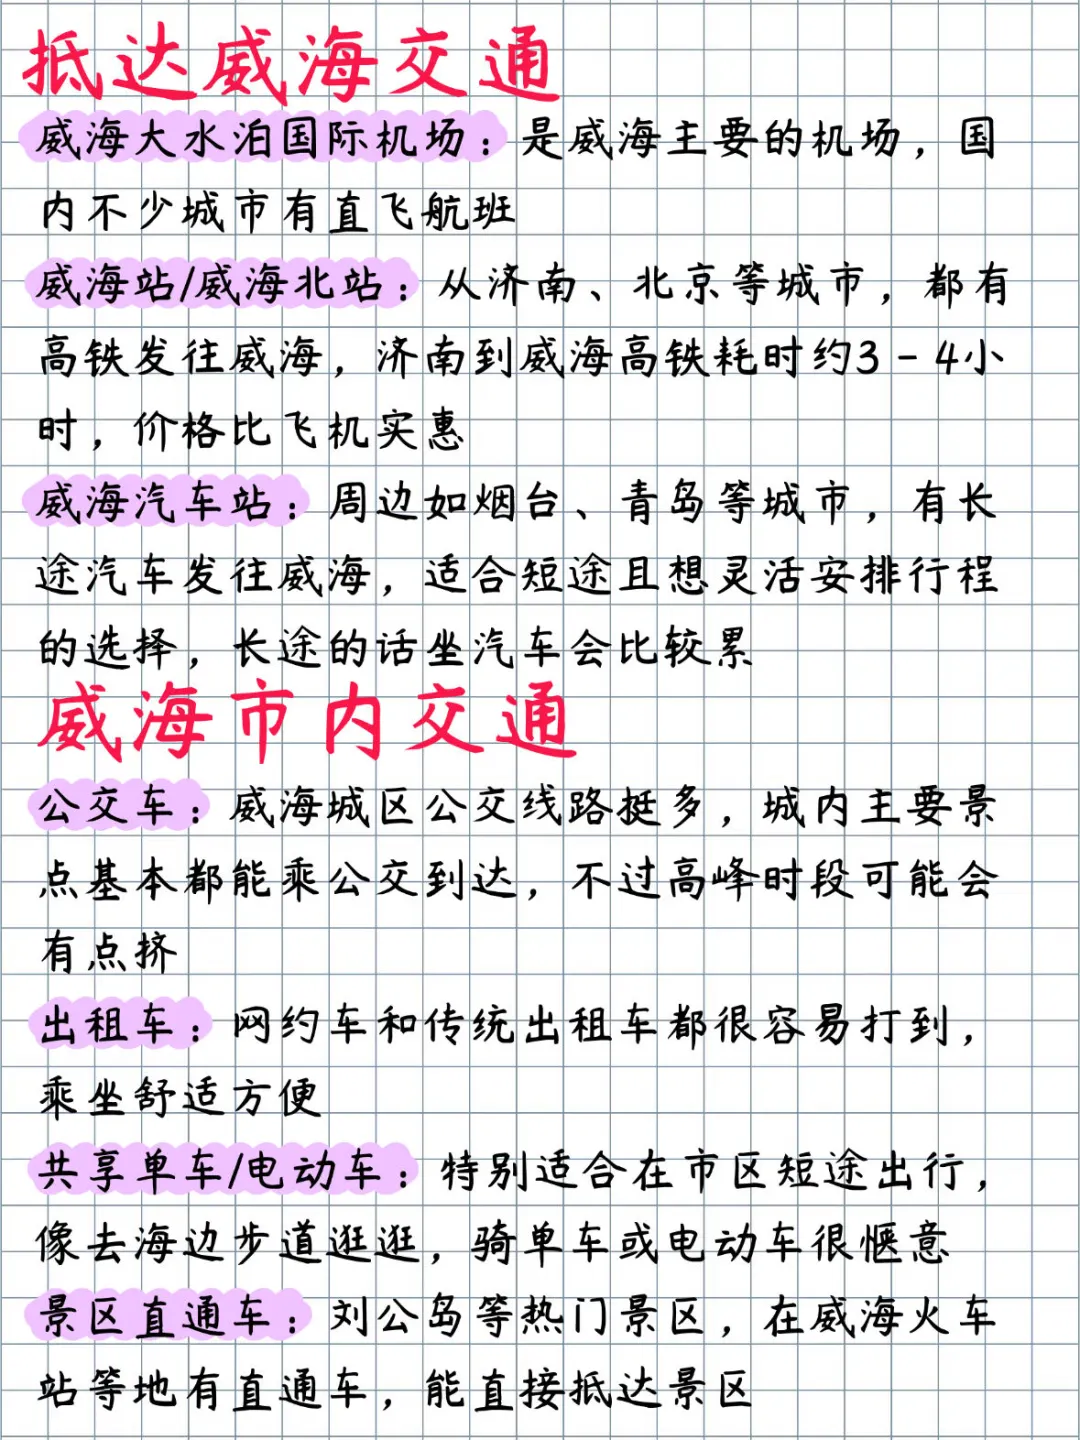 抵达威海交通
威海大水泊国际机场：是威海主要的机场，国
内不少城市有直飞航班
威海站/威海北站：从济南、北京等城市，都有
高铁发往威海，济南到威海高铁耗时约3-4小
时，价格比飞机实惠
威海汽车站：周边如烟台、青岛等城市，有长
途汽车发往威海，适合短途且想灵活安排行程
的选择，长途的话坐汽车会比较累
威海市内交通
公交车：威海城区公交线路挺多，城内主要景
点基本都能乘公交到达，不过高峰时段可能会
有点挤
出租车：网约车和传统出租车都很容易打到，
乘坐舒适方便
共享单车/电动车：特别适合在市区短途出行，
像去海边步道逛逛，骑单车或电动车很惬意
景区直通车：刘公岛等热门景区，在威海火车
站等地有直通车，能直接抵达景区